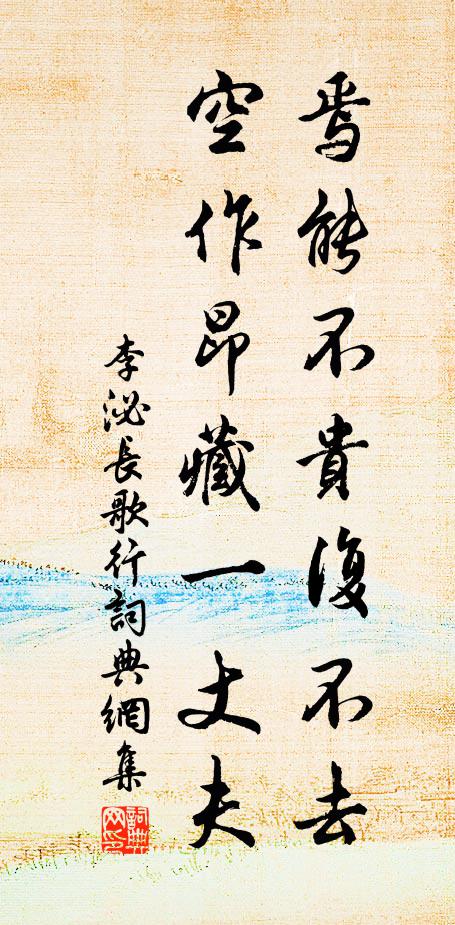 焉能不貴復不去
空作昂藏一丈夫
李泌長歌行詞典網集
詞典
网印